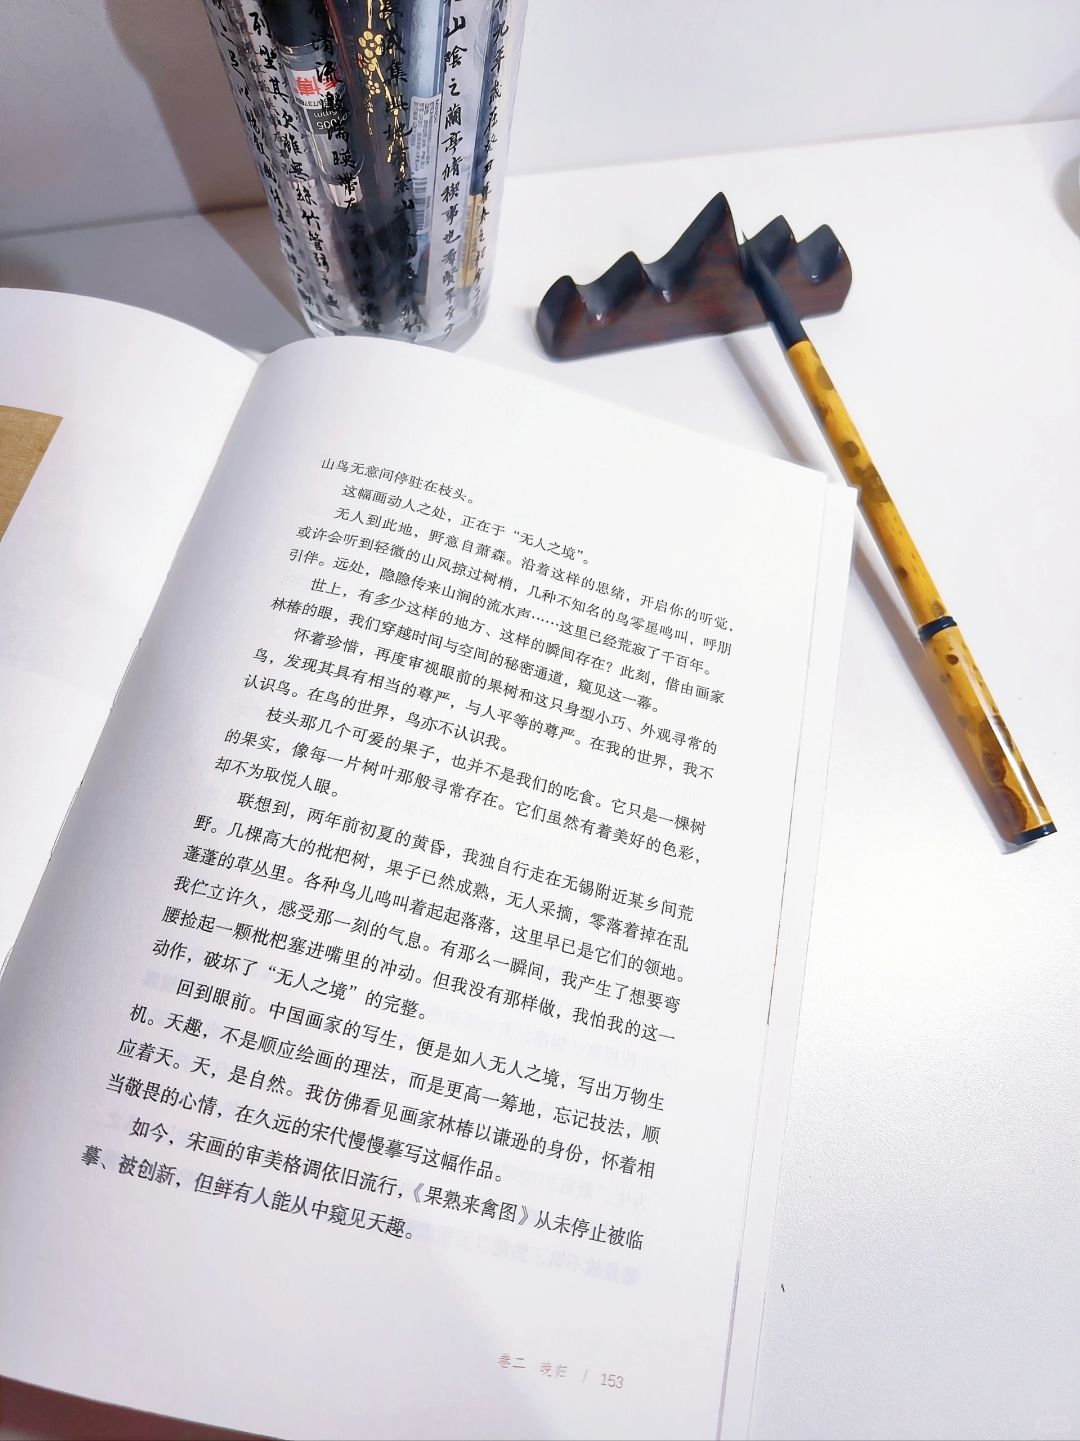 列坐其次雖無絲竹管弦之盛
清流激湍映帶左右引
山陰之蘭亭脩稧事也羣賢畢至少
山鸟无意间停驻在枝头。
这幅画动人之处，正在于“无人之境”。
无人到此地，野意自萧森。沿着这样的思绪，开启你的听觉，
或许会听到轻微的山风掠过树梢，几种不知名的鸟零星鸣叫，呼朋
引伴。远处，隐隐传来山涧的流水声……这里已经荒寂了千百年。
世上，有多少这样的地方、这样的瞬间存在？此刻，借由画家
林椿的眼，我们穿越时间与空间的秘密通道，窥见这一幕。
怀着珍惜，再度审视眼前的果树和这只身型小巧、外观寻常的
鸟，发现其具有相当的尊严，与人平等的尊严。在我的世界，我不
认识鸟。在鸟的世界，鸟亦不认识我。
枝头那几个可爱的果子，也并不是我们的吃食。它只是一棵树
的果实，像每一片树叶那般寻常存在。它们虽然有着美好的色彩，
却不为取悦人眼。
联想到，两年前初夏的黄昏，我独自行走在无锡附近某乡间荒
野。几棵高大的枇杷树，果子已然成熟，无人采摘，零落着掉在乱
蓬蓬的草丛里。各种鸟儿鸣叫着起起落落，这里早已是它们的领地。
我伫立许久，感受那一刻的气息。有那么一瞬间，我产生了想要弯
腰捡起一颗枇杷塞进嘴里的冲动。但我没有那样做，我怕我的这一
动作，破坏了“无人之境”的完整。
回到眼前。中国画家的写生，便是如入无人之境，写出万物生
机。天趣，不是顺应绘画的理法，而是更高一筹地，忘记技法，顺
应着天。天，是自然。我仿佛看见画家林椿以谦逊的身份，怀着相
当敬畏的心情，在久远的宋代慢慢摹写这幅作品。
如今，宋画的审美格调依旧流行，《果熟来禽图》从未停止被临
摹、被创新，但鲜有人能从中窥见天趣。
卷二 晚归 / 153